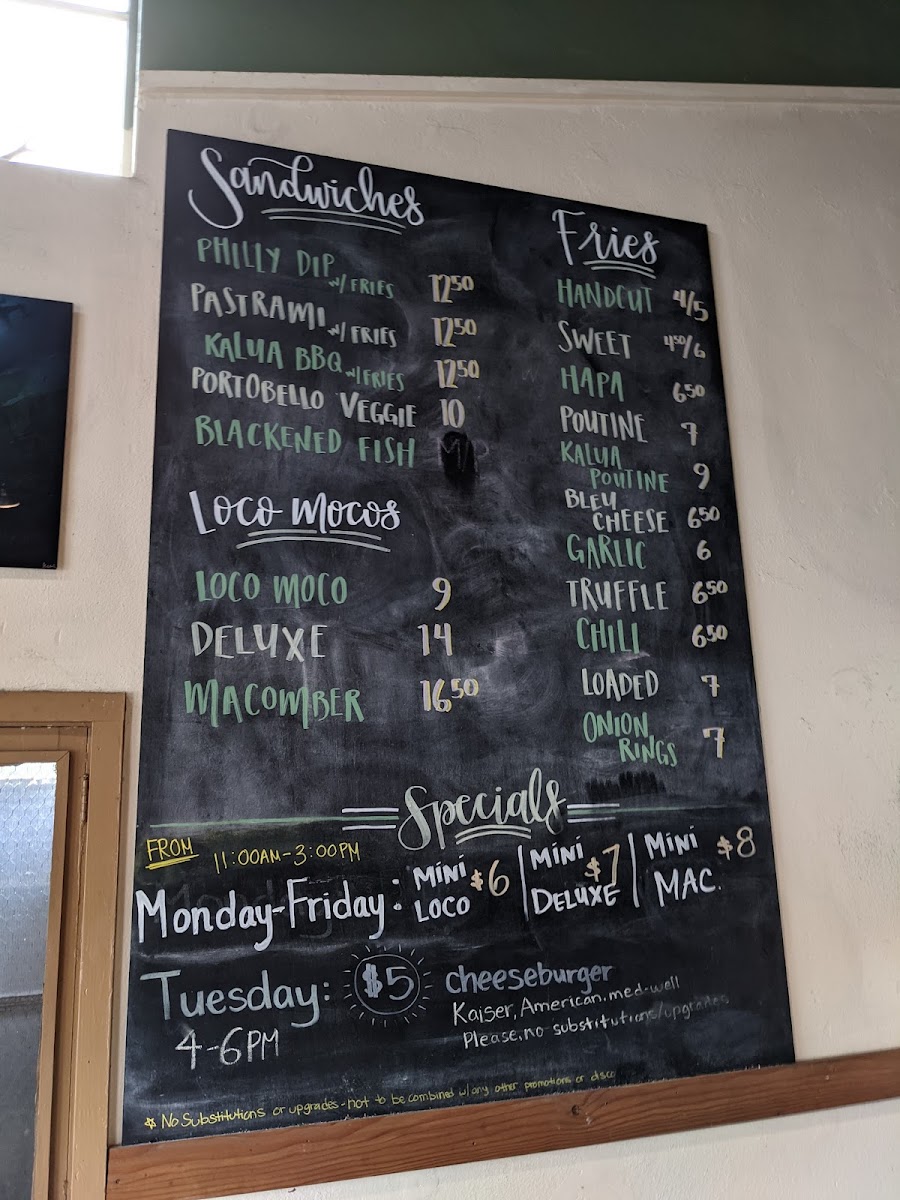 Sandwiches
PHILLY DIP w/ FRIES 12⁵⁰
PASTRAMI w/ FRIES 12⁵⁰
KALUA BBQ w/ FRIES 12⁵⁰
PORTOBELLO VEGGIE 10
BLACKENED FISH
Loco Mocos
LOCO MOCO 9
DELUXE 14
MACOMBER 16⁵⁰
Fries
HANDCUT 4/5
SWEET 4⁵⁰/6
HAPA 6⁵⁰
POUTINE 7
KALUA
POUTINE 9
BLEU
CHEESE 6⁵⁰
GARLIC 6
TRUFFLE 6⁵⁰
CHILI 6⁵⁰
LOADED 7
ONION
RINGS 7
Specials
FROM 11:00AM-3:00PM
Monday-Friday: MINI LOCO $6 | MINI DELUXE $7 | MINI MAC. $8
Tuesday: $5 cheeseburger
4-6PM
Kaiser, American, med-well
Please, no substitutions/upgrades
☆ No Substitutions or upgrades - not to be combined w/ any other promotions or disco